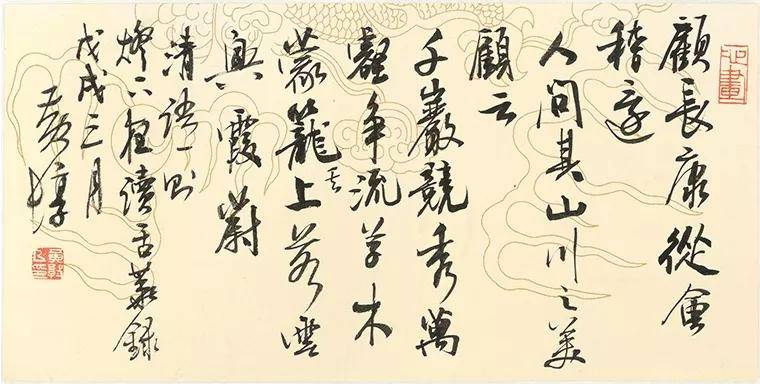 顧長康從會
稽還
人問其山川之美
顧云
千巖競秀萬
壑争流草木
蒙籠其上若雲
興霞蔚
清語一則
燈下讀舌華錄
戊戌三月
黃惇